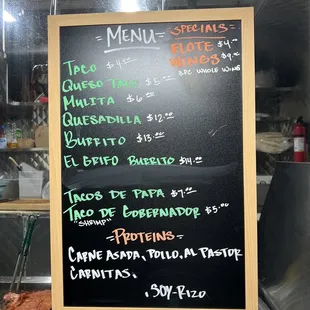 =MENU=
SPECIALS
ELOTE $4.00
WINGS $9.00
5PC WHOLE WING
TACO $4.00
QUESO TACO $5.00
MULITA $6.00
QUESADILLA $12.00
BURRITO $13.00
EL GRIFO BURRITO $14.00
TACOS DE PAPA $7.00
TACO DE GOBERNADOR $5.00
"SHRIMP"
=PROTEINS=
CARNE ASADA, POLLO, AL PASTOR
CARNITAS.
.SOY-RIZO